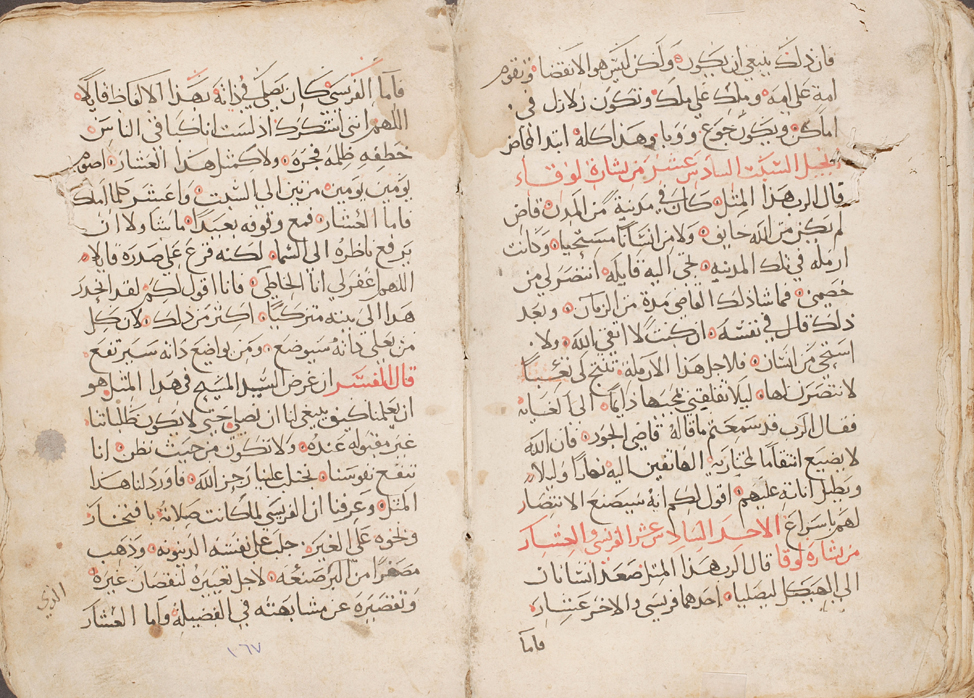 فان ذلك ينبغي ان يكون ولكن ليس هو الانقضا وتقوم
امة على امة وملك على ملك وتكون زلازل في
اماكن ويكون جوع ووبا وهذا كله ابتدا المخاض
السبت السادس عشر من بشارة لوقا
قال الرب هذا المثل كان في مدينة من المدن قاض
لم يكن من الله خايف ولا من انسانا مستحيا وكانت
ارملة في تلك المدينه تجي اليه قايلة انتصر لي من
خصمي فما شا ذلك القاضي مدة من الزمان وبعد
ذلك قال في نفسه ان كنت لا اتقي الله ولا
استحي من انسان فلاجل هذا الارملة تنتج لي تعبًا
لانتصرن لها ليلا تقلقني بمجيها دايما الى الغاية
فقال الرب قد سمعتم ما قاله قاضي الجور فان الله
لا يصنع انتقاما لمختاريه الهاتفين اليه نهارا وليلا
ويطيل اناته عليهم اقول لكم انه سيصنع الانتصار
لهم باسراع الاحد السادس عشر الفريسي والعشار
من بشارة لوقا قال الرب هذا المثل صعد انسانان
الى الهيكل ليصليا احدهما فريسي والاخر عشار
فاما
فاما الفريسي كان يصلي في ذاته بهذا الالفاظ قايلا
اللهم انني اشكرك اذ لست انا كباقي الناس
خطفه ظلمه فجره ولا كمثل هذا العشار اصوم
يومين يومين مرتين الي السبت واعشر كلما املك
فاما العشار فمع وقوفه بعيدا ما شا ولا ان
يرفع ناظره الى السما لكنه قرع على صدره قايلا
اللهم اغفر لي انا الخاطي فانا اقول لكم لقد انحدر
هذا الى بيته متزكيا اكثر من ذلك لان كل
من يعلي ذاته سيوضع ومن يواضع ذاته سيرتفع
قال المفسر ان غرض السيد المسيح في هذا المثل هو
ان يعلمنا كيف ينبغي لنا ان نصلي حتى لا تكون طلباتنا
غير مقبوله عنده ولا تكون من حيث نظن اننا
ننفع نفوسنا نجتلب علينا رجز الله فاورد لنا هذا
المثل وعرفنا ان الفريسي لما كانت صلاته بافتخار
ونخوه على الغير جلب على نفسه الدينونه وذهب
مصفرا من البر صنعه لاجل تعييره لنقصان غيره
وتقصيره عن مشابهته في الفضيله واما العشار
الذي
١٠٦٧